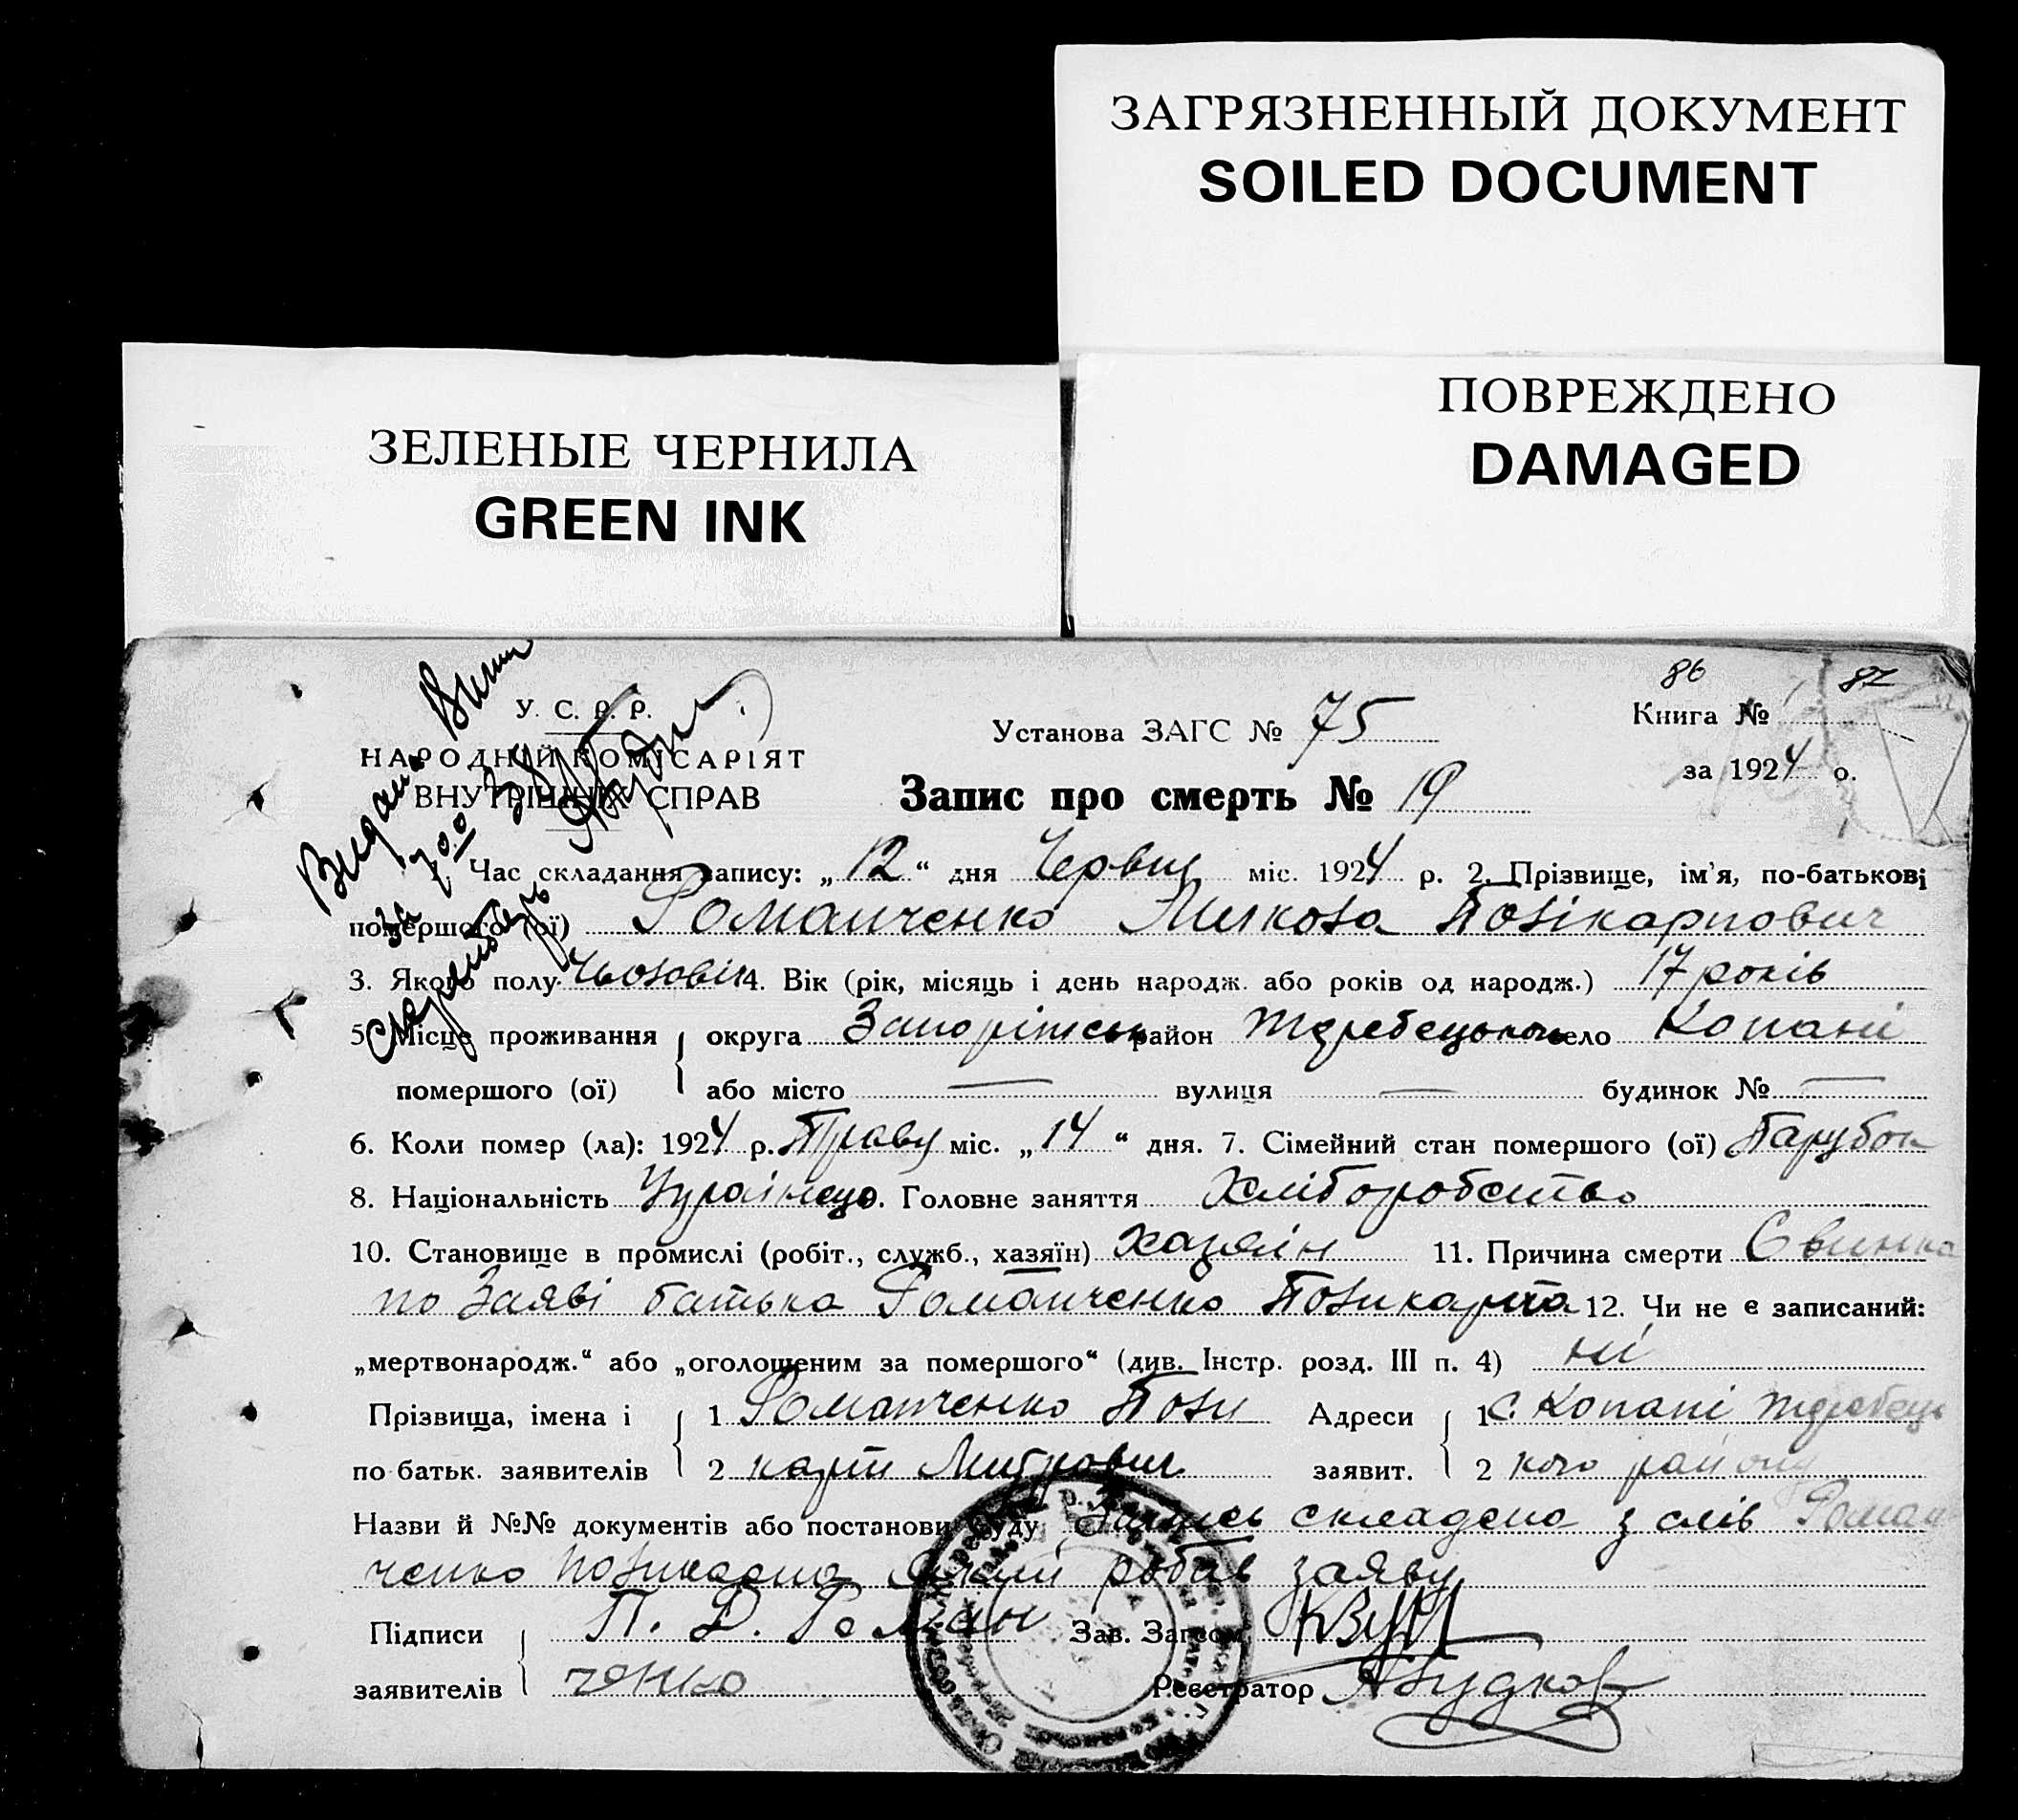 ЗАГРЯЗНЕННЫЙ ДОКУМЕНТ
SOILED DOCUMENT
ПОВРЕЖДЕНО
DAMAGED
ЗЕЛЕНЫЕ ЧЕРНИЛА
GREEN INK
86 87
У. С. Р. Р.
НАРОДНІЙ КОМІСАРІЯТ
ВНУТРІШНІХ СПРАВ
Установа ЗАГС № 75
Книга №
за 1924 р.
Запис про смерть № 19
Час складання запису: „12“ дня Червця міс. 1924 р. 2. Прізвище, ім'я, по-батькові
помершого (ої) Романченко Микола Полікарпович
3. Якого полу Чоловік 4. Вік (рік, місяць і день народж. або років од народж.) 17 років
5. Місце проживання округа Запоріжськ район Жеребецького село Копані
помершого (ої) або місто — вулиця — будинок № —
6. Коли помер (ла): 1924 р. Травц міс. „14“ дня. 7. Сімейний стан помершого (ої) Парубок
8. Національність Українець 9. Головне заняття Хліборобство
10. Становище в промислі (робіт., служб., хазяїн) хазяїн 11. Причина смерти Свинка
по Заяві батька Романченко Поликарпа 12. Чи не є записаний:
„мертвонародж.“ або „оголошеним за помершого“ (див. Інстр. розд. III п. 4) ні
Прізвища, імена і 1 Романченко Поли Адреси 1 с. Копані Жеребець
по батьк. заявителів 2 карп Митрович заявит. 2 кого району
Назви й №№ документів або постанови суду Запись складена з слів Роман
ченко Поликарпа робив заяву
Підписи П. Д. Роман Зав. Загсом
заявителів ченко Реєстратор